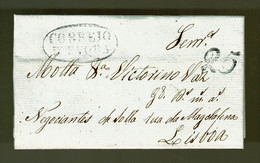 CORREIO
D'EVORA
Snrs.
85
Motta & Victorino Vaz
Negociantes de Solla rua da Magdalena
Lisboa